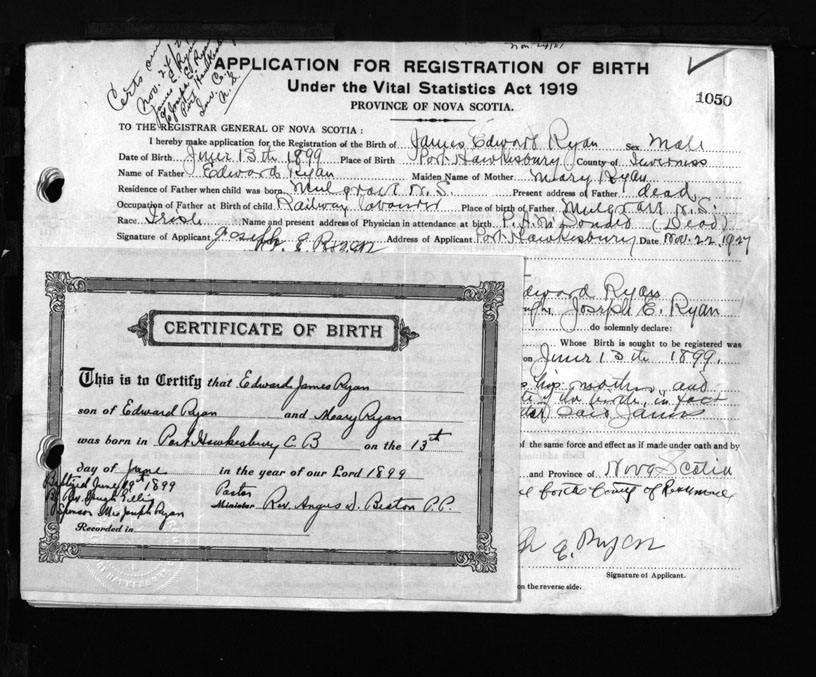 Certs
Nov. 24/27
James E Ryan
℅ Joseph E. Ryan
Port Hawkesbury
Inv. Co.
N.S.
APPLICATION FOR REGISTRATION OF BIRTH
Under the Vital Statistics Act 1919
PROVINCE OF NOVA SCOTIA.
1050
TO THE REGISTRAR GENERAL OF NOVA SCOTIA:
I hereby make application for the Registration of the Birth of James Edward Ryan Sex Male
Date of Birth June 13th 1899 Place of Birth Port Hawkesbury County of Inverness
Name of Father Edward Ryan Maiden Name of Mother Mary Ryan
Residence of Father when child was born Mulgrave N.S. Present address of Father dead
Occupation of Father at Birth of child Railway labourer Place of birth of Father Mulgrave N.S.
Race Irish Name and present address of Physician in attendance at birth P.A. McDonald (Dead)
Signature of Applicant Joseph E. Ryan Address of Applicant Port Hawkesbury Date Nov. 22 1927
dward Ryan
Joseph E. Ryan
do solemnly declare:
Whose Birth is sought to be registered was
on June 13th 1899.
his mother, and
in fact
said James
f the same force and effect as if made under oath and by
and Province of Nova Scotia
County of Richmond
E. Ryan
Signature of Applicant.
on the reverse side.
CERTIFICATE OF BIRTH
This is to Certify that Edward James Ryan
son of Edward Ryan and Meary Ryan
was born in Port Hawkesbury C B on the 13th
day of June in the year of our Lord 1899
Baptized June 1899
By Rev.
Sponsor Mrs Joseph Ryan
Pastor
Minister Rev. Angus D. Beaton P.P.
Recorded in